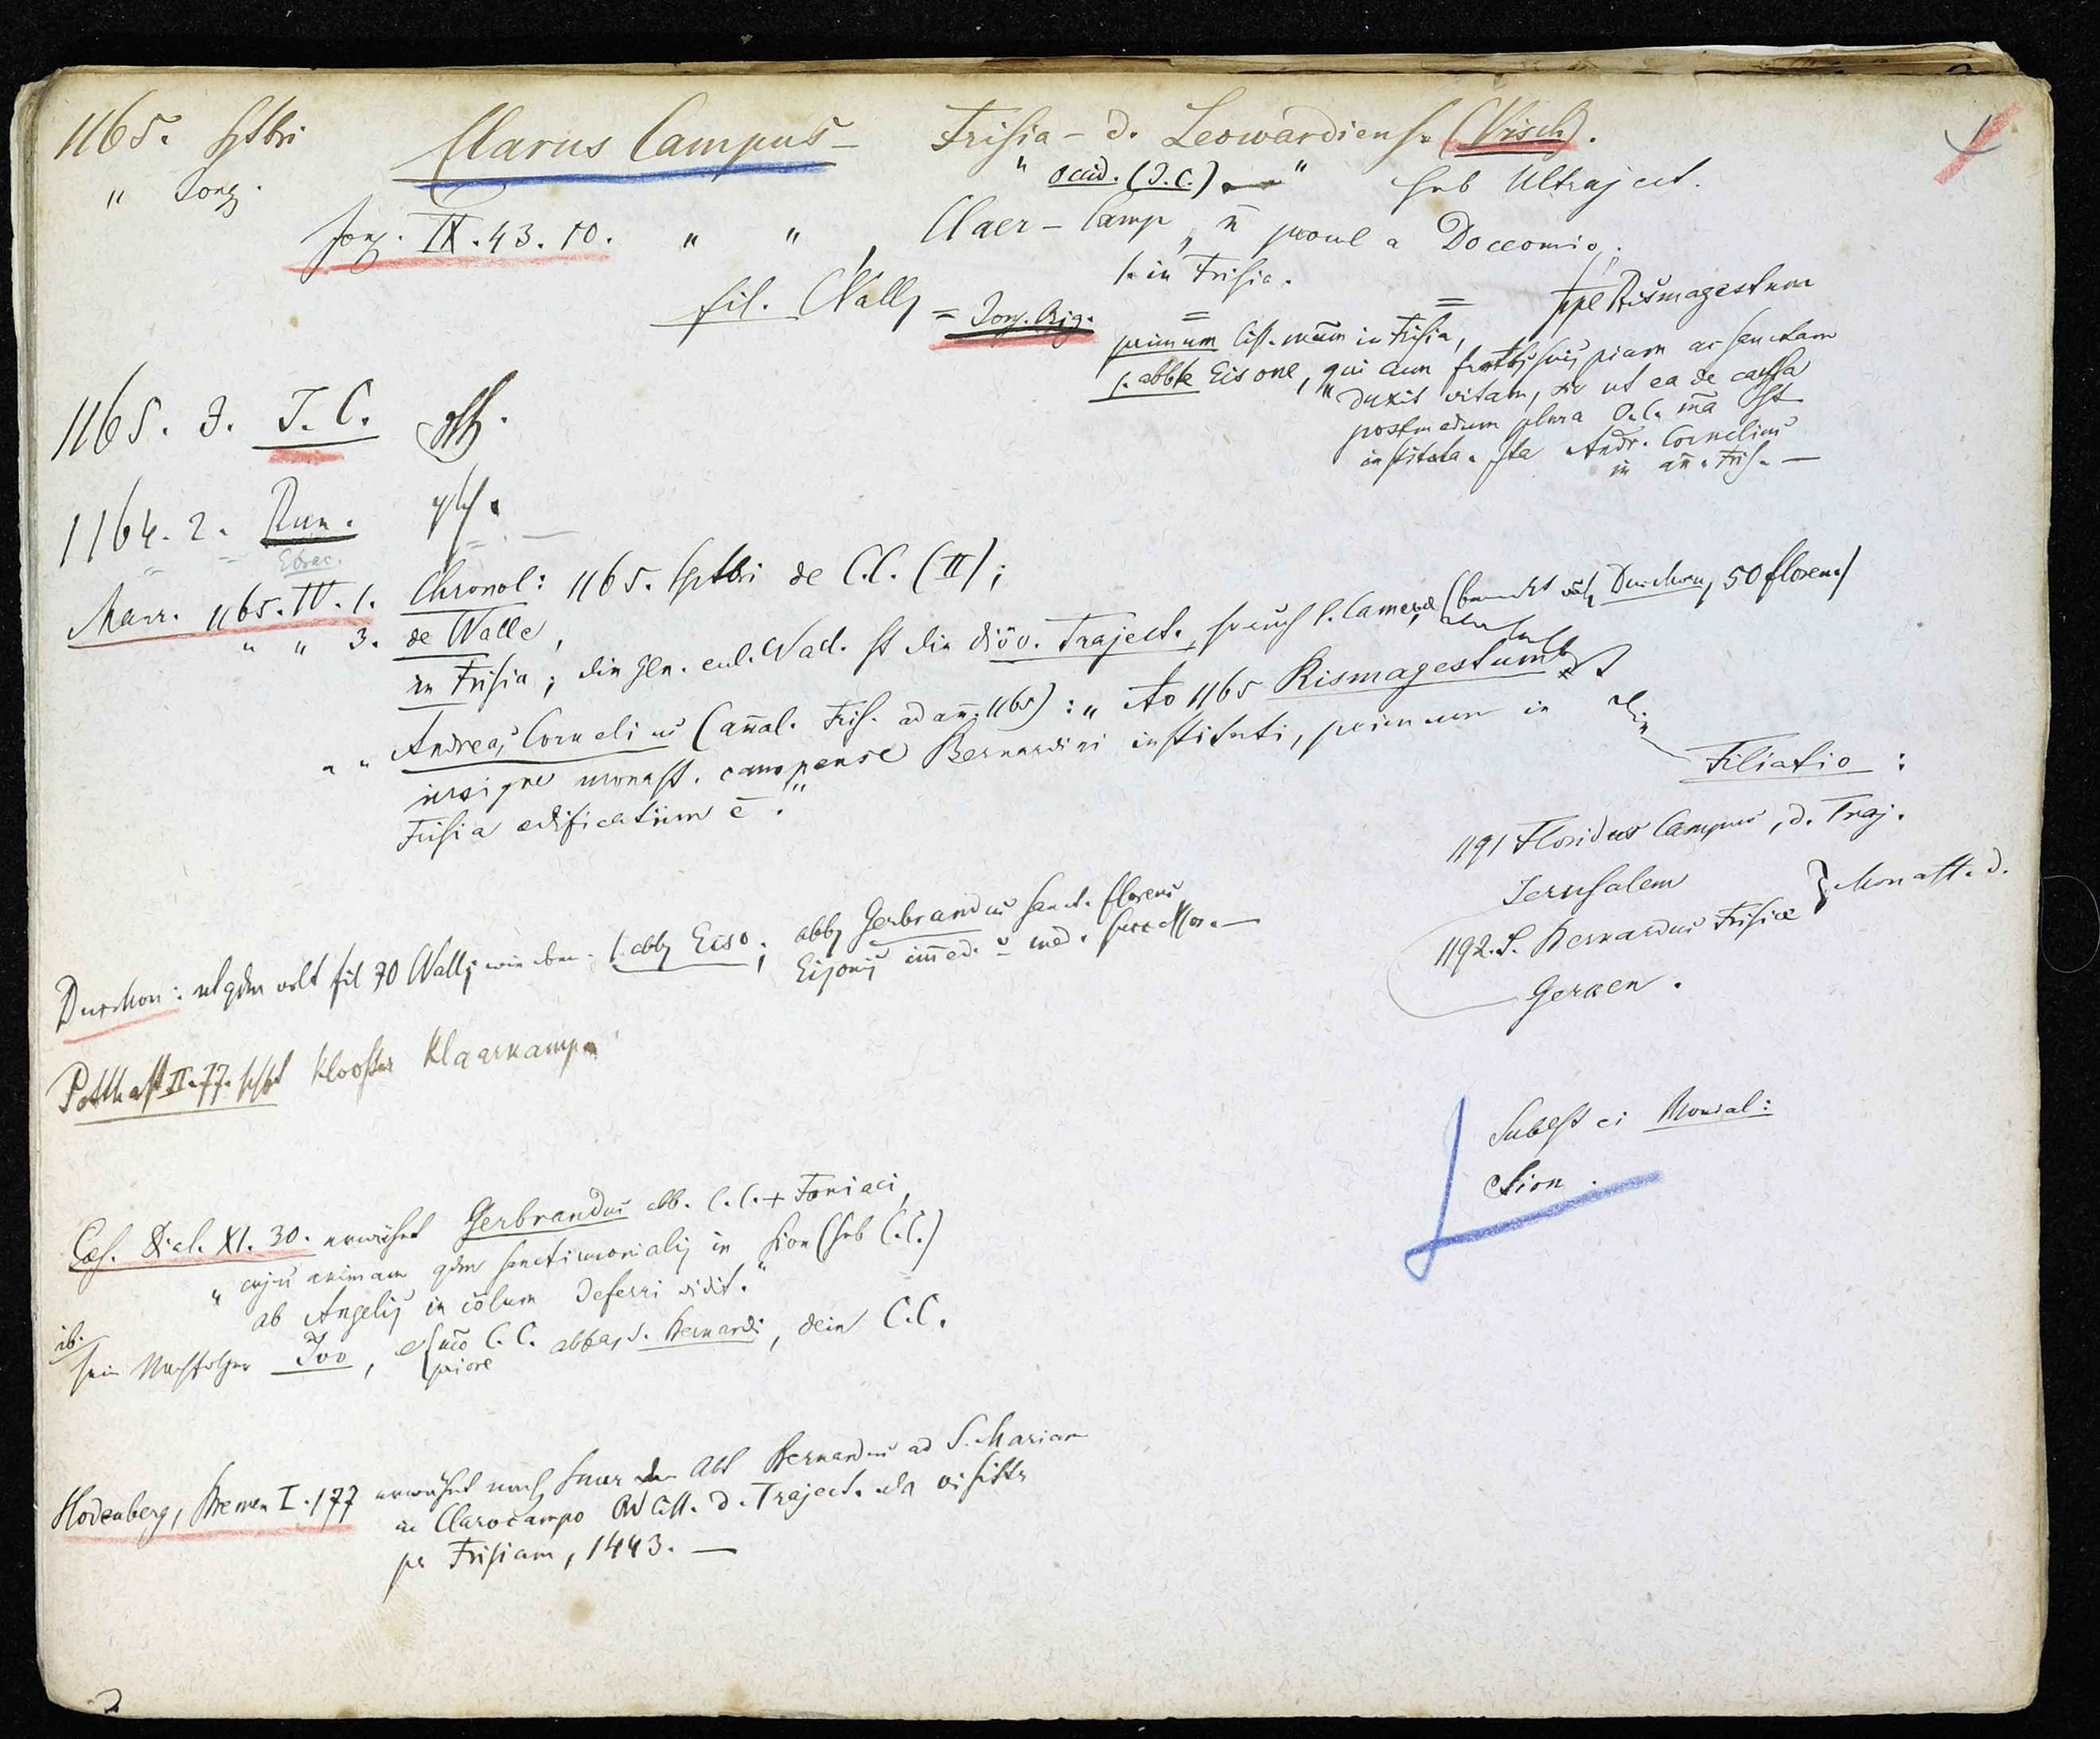 1165. Sptbri Clarus Campus – Frisia – d. Leowardiens. (Visch).
" Jong. " occid. (J.C.) " sub Ultraject.
Jong. IX. 43. 10. " " , Claer-Camp, n̄ procul a Doccomio,
s. in Frisia.
fil. Vallis = Jong. Orig. = = ppe Rismagestum
primum Cist. mūm in Frisia,
1. abbte Eisone, qui cum frātbs suis piam ac sanctam
" duxit vitam, sic ut ea de caussa
postmodum plura O.C. mā st
instituta. Ita Andr. Cornelius
in an. Fris. –
1165. 3. J.C.
1164. 2. Run.
" = Ebrac. = . –
Manr. 1165. IV. 1. Chronol: 1165. Sptbri de C.C. (II);
" " 3. de Valle,
in Frisia; die Diöc. Traject. Camera, Durchon, 50 floren.)
" " Andreas Cornelius (annal. Fris. ad an. 1165): " Ao 1165 Rismagestum
insigne monast. campense Bernardini instituti, primum in
Frisia ædificatum ē."
Filiatio:
1191 Floridus Campus, d. Traj.
Jerusalem
1192. S. Bernardus Frisiæ } Monast. d.
Gerken.
Durchon: ut qdm volt fil 70 Vallis wie oben. 1. abbs Eiso; abbs Gerbrandus sanct. florens
Eisonis im̄ed. u med. successor. –
Potthast II. 77. Klooster Klaarkamp
Subest ei Monial:
Sion.
Cæs. Dial. XI. 30. erwähnt Gerbrandus abb. C.C. + Foniaci,
" cujus animam qdm sanctimonialis in Sion (sub C.C.)
ab Angelis in cœlum deferri vidit."
ib. sein Nachfolger Ivo, e { mco C.C. abbas S. Bernardi, dein C.C.
priore
Hodenberg, Bremen I. 177 erwähnt noch den Abt Bernardus ad S. Mariam
in Clarocampo Ord Cist. d. Traject. als visittr
pr Frisiam, 1443. –